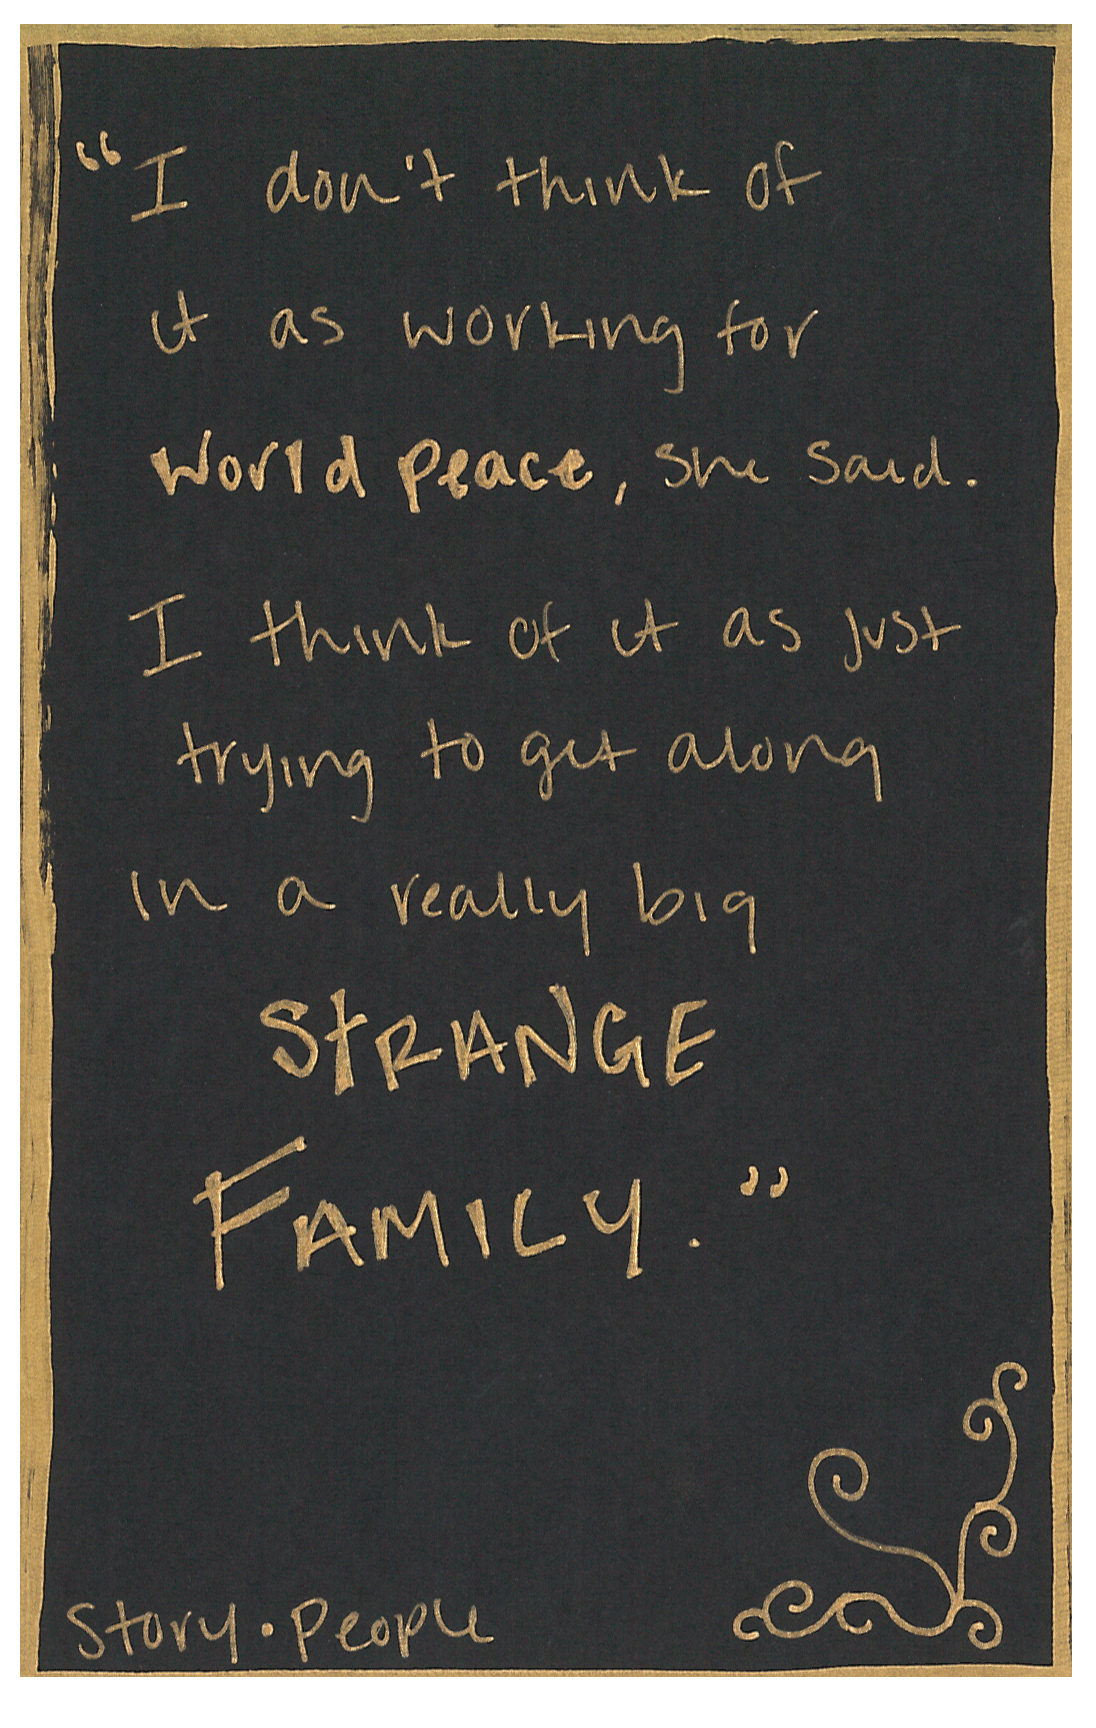 “I don't think of
it as working for
world peace, she said.
I think of it as just
trying to get along
in a really big
STRANGE
FAMILY.”
Story • People